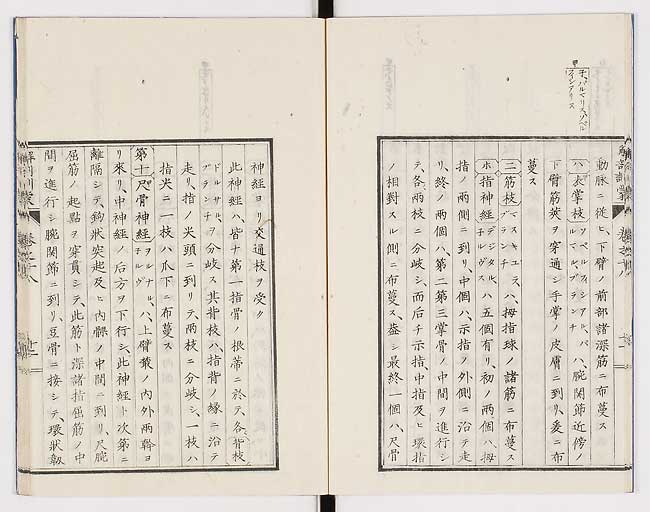 動脈ニ從ヒ、下臂ノ前部諸深筋ニ布蔓ス
ハ表掌枝ソペルフィシアル、パルマル、ブランチハ、腕関節近傍ノ
下臂筋莢ヲ穿通シ手掌ノ皮膚ニ到リ、爰ニ布
蔓ス
ニ筋枝ハ、拇指球ノ諸筋ニ布蔓ス
ホ指神経デジタル、子ルヴスハ五個有リ、初ノ両個ハ、拇
指ノ両側ニ到リ、中個ハ、示指ノ外側ニ沿テ走
リ、終ノ両個ハ、第二第三掌骨ノ中間ヲ進行シ
テ、各両枝ニ分岐シ、而后チ示指、中指及ヒ環指
ノ相對スル側ニ布蔓ス、盖シ最終一個ハ、尺骨
神経ヨリ交通枝ヲ受ク
此神経ハ、皆ナ第一指骨ノ根蒂ニ於テ、各背枝
ドルサル、ブランチヲ分岐ス其背枝ハ、指背ノ縁ニ沿テ
走リ、指ノ尖頭ニ到リテ両枝ニ分岐シ、一枝ハ
指尖ニ一枝ハ爪下ニ布蔓ス
第十尺骨神経ヲルナル、子ルヴハ、上臂叢ノ内外両幹ヨ
リ來リ、中神経ノ后方ヲ下行シ、此神経ト次第ニ
離隔シテ、鉤状突起及ヒ内髁ノ中間ニ到リ、尺腕
屈筋ノ起點ヲ穿貫シテ、此筋ト深諸指屈筋ノ中
間ヲ進行シ腕関節ニ到リ、豆骨ニ接シテ、環状靱